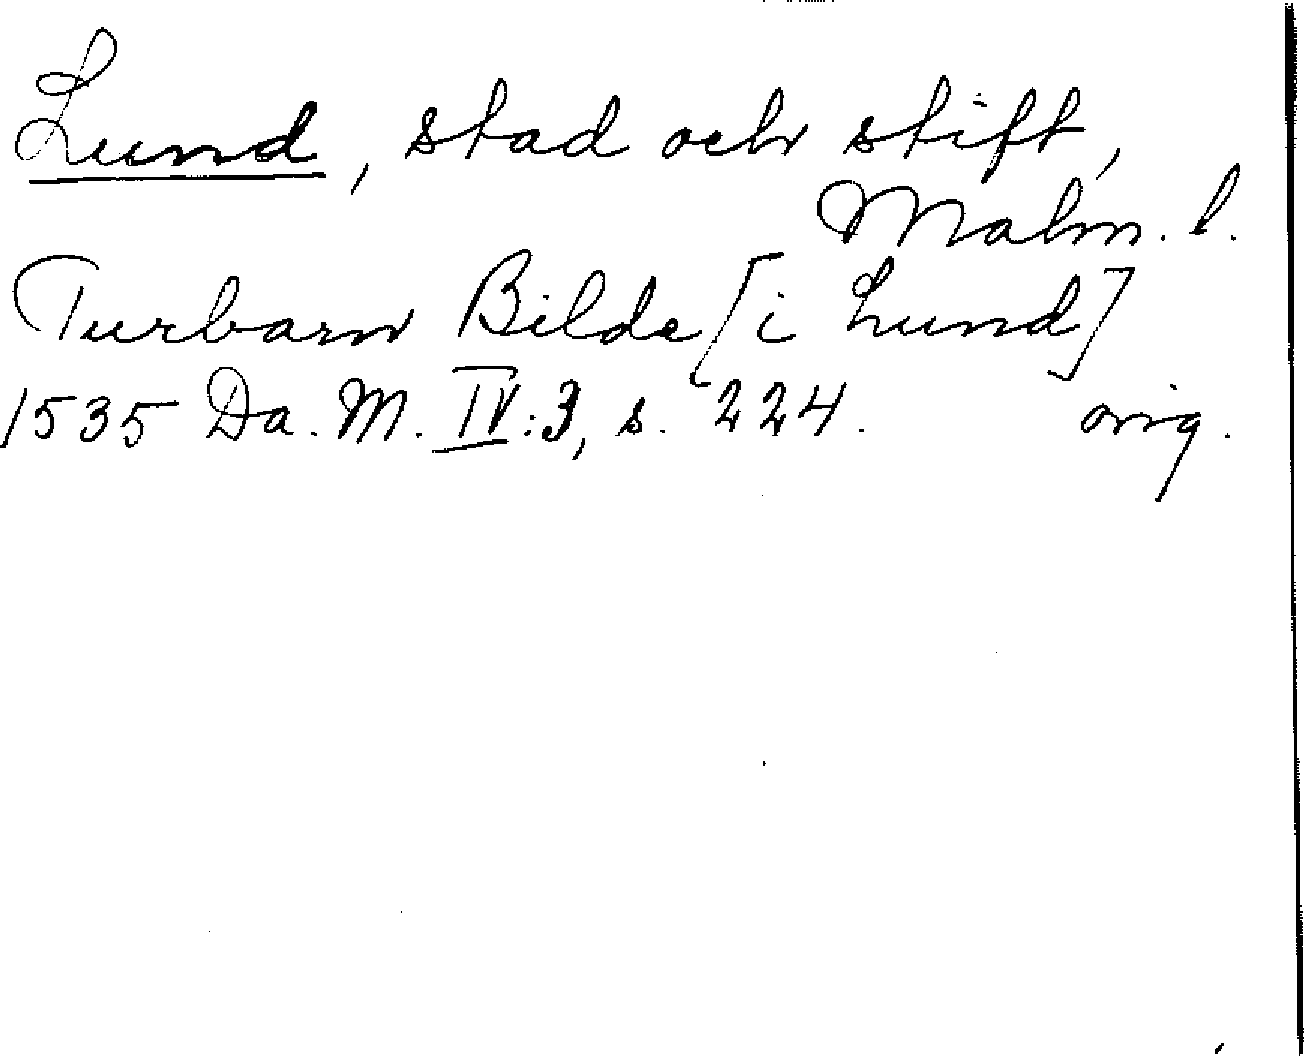 Lund, stad och stift,
Malm. l.
Turbarn Bilde [i Lund]
1535 Da. M. IV:3, s. 224. orig.